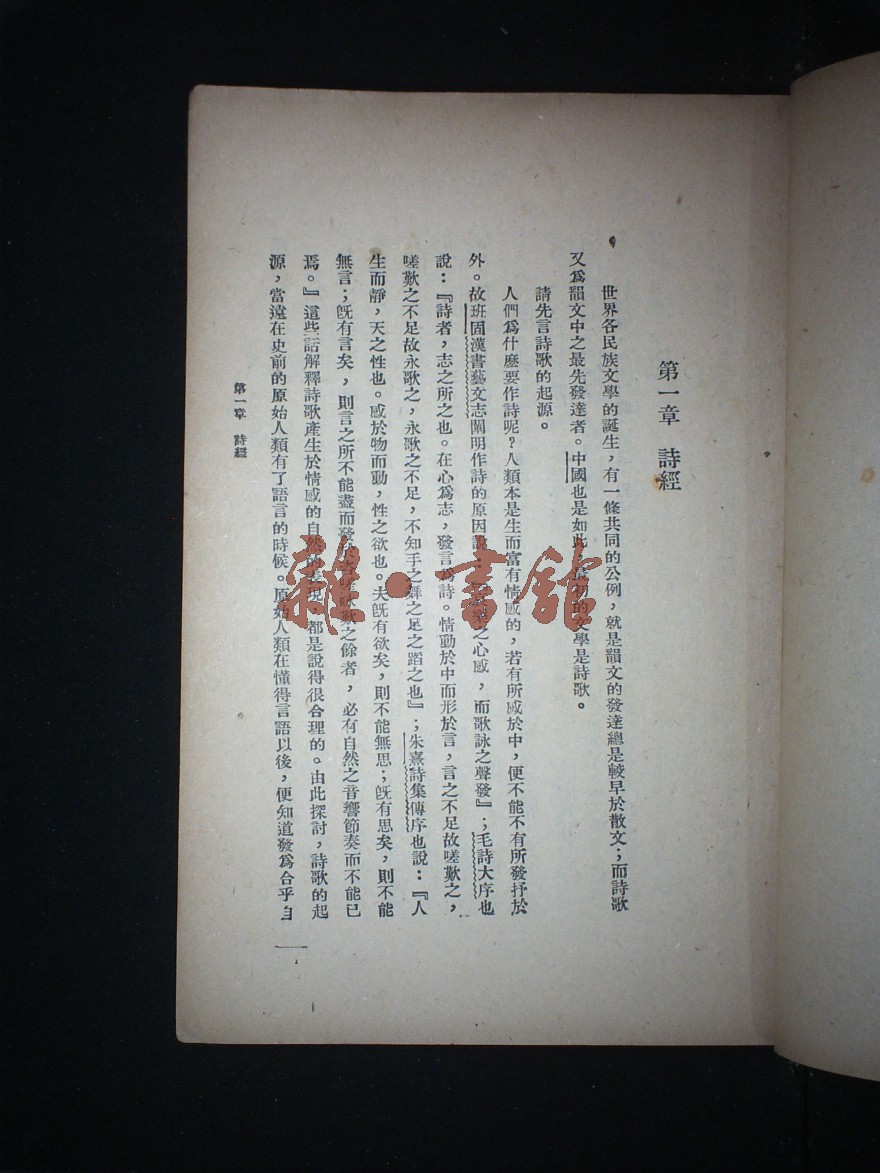 第一章　詩經
世界各民族文學的誕生，有一條共同的公例，就是韻文的發達總是較早於散文；而詩歌
又爲韻文中之最先發達者。中國也是如此，最初的文學是詩歌。
請先言詩歌的起源。
人們爲什麼要作詩呢？人類本是生而富有情感的，若有所感於中，便不能不有所發抒於
外。故班固漢書藝文志闡明作詩的原因說：之心感，而歌詠之聲發』；毛詩大序也
說：『詩者，志之所之也。在心爲志，發言爲詩。情動於中而形於言，言之不足故嗟歎之，
嗟歎之不足故永歌之，永歌之不足，不知手之舞之足之蹈之也』；朱熹詩集傳序也說：『人
生而靜，天之性也。感於物而動，性之欲也。夫旣有欲矣，則不能無思；旣有思矣，則不能
無言；旣有言矣，則言之所不能盡而發於咨嗟咏歎之餘者，必有自然之音響節奏而不能已
焉。』這些話解釋詩歌產生於情感的自然的表現，都是說得很合理的。由此探討，詩歌的起
源，當遠在史前的原始人類有了語言的時候。原始人類在懂得言語以後，便知道發爲合乎自
第一章　詩經
一
雜·書館